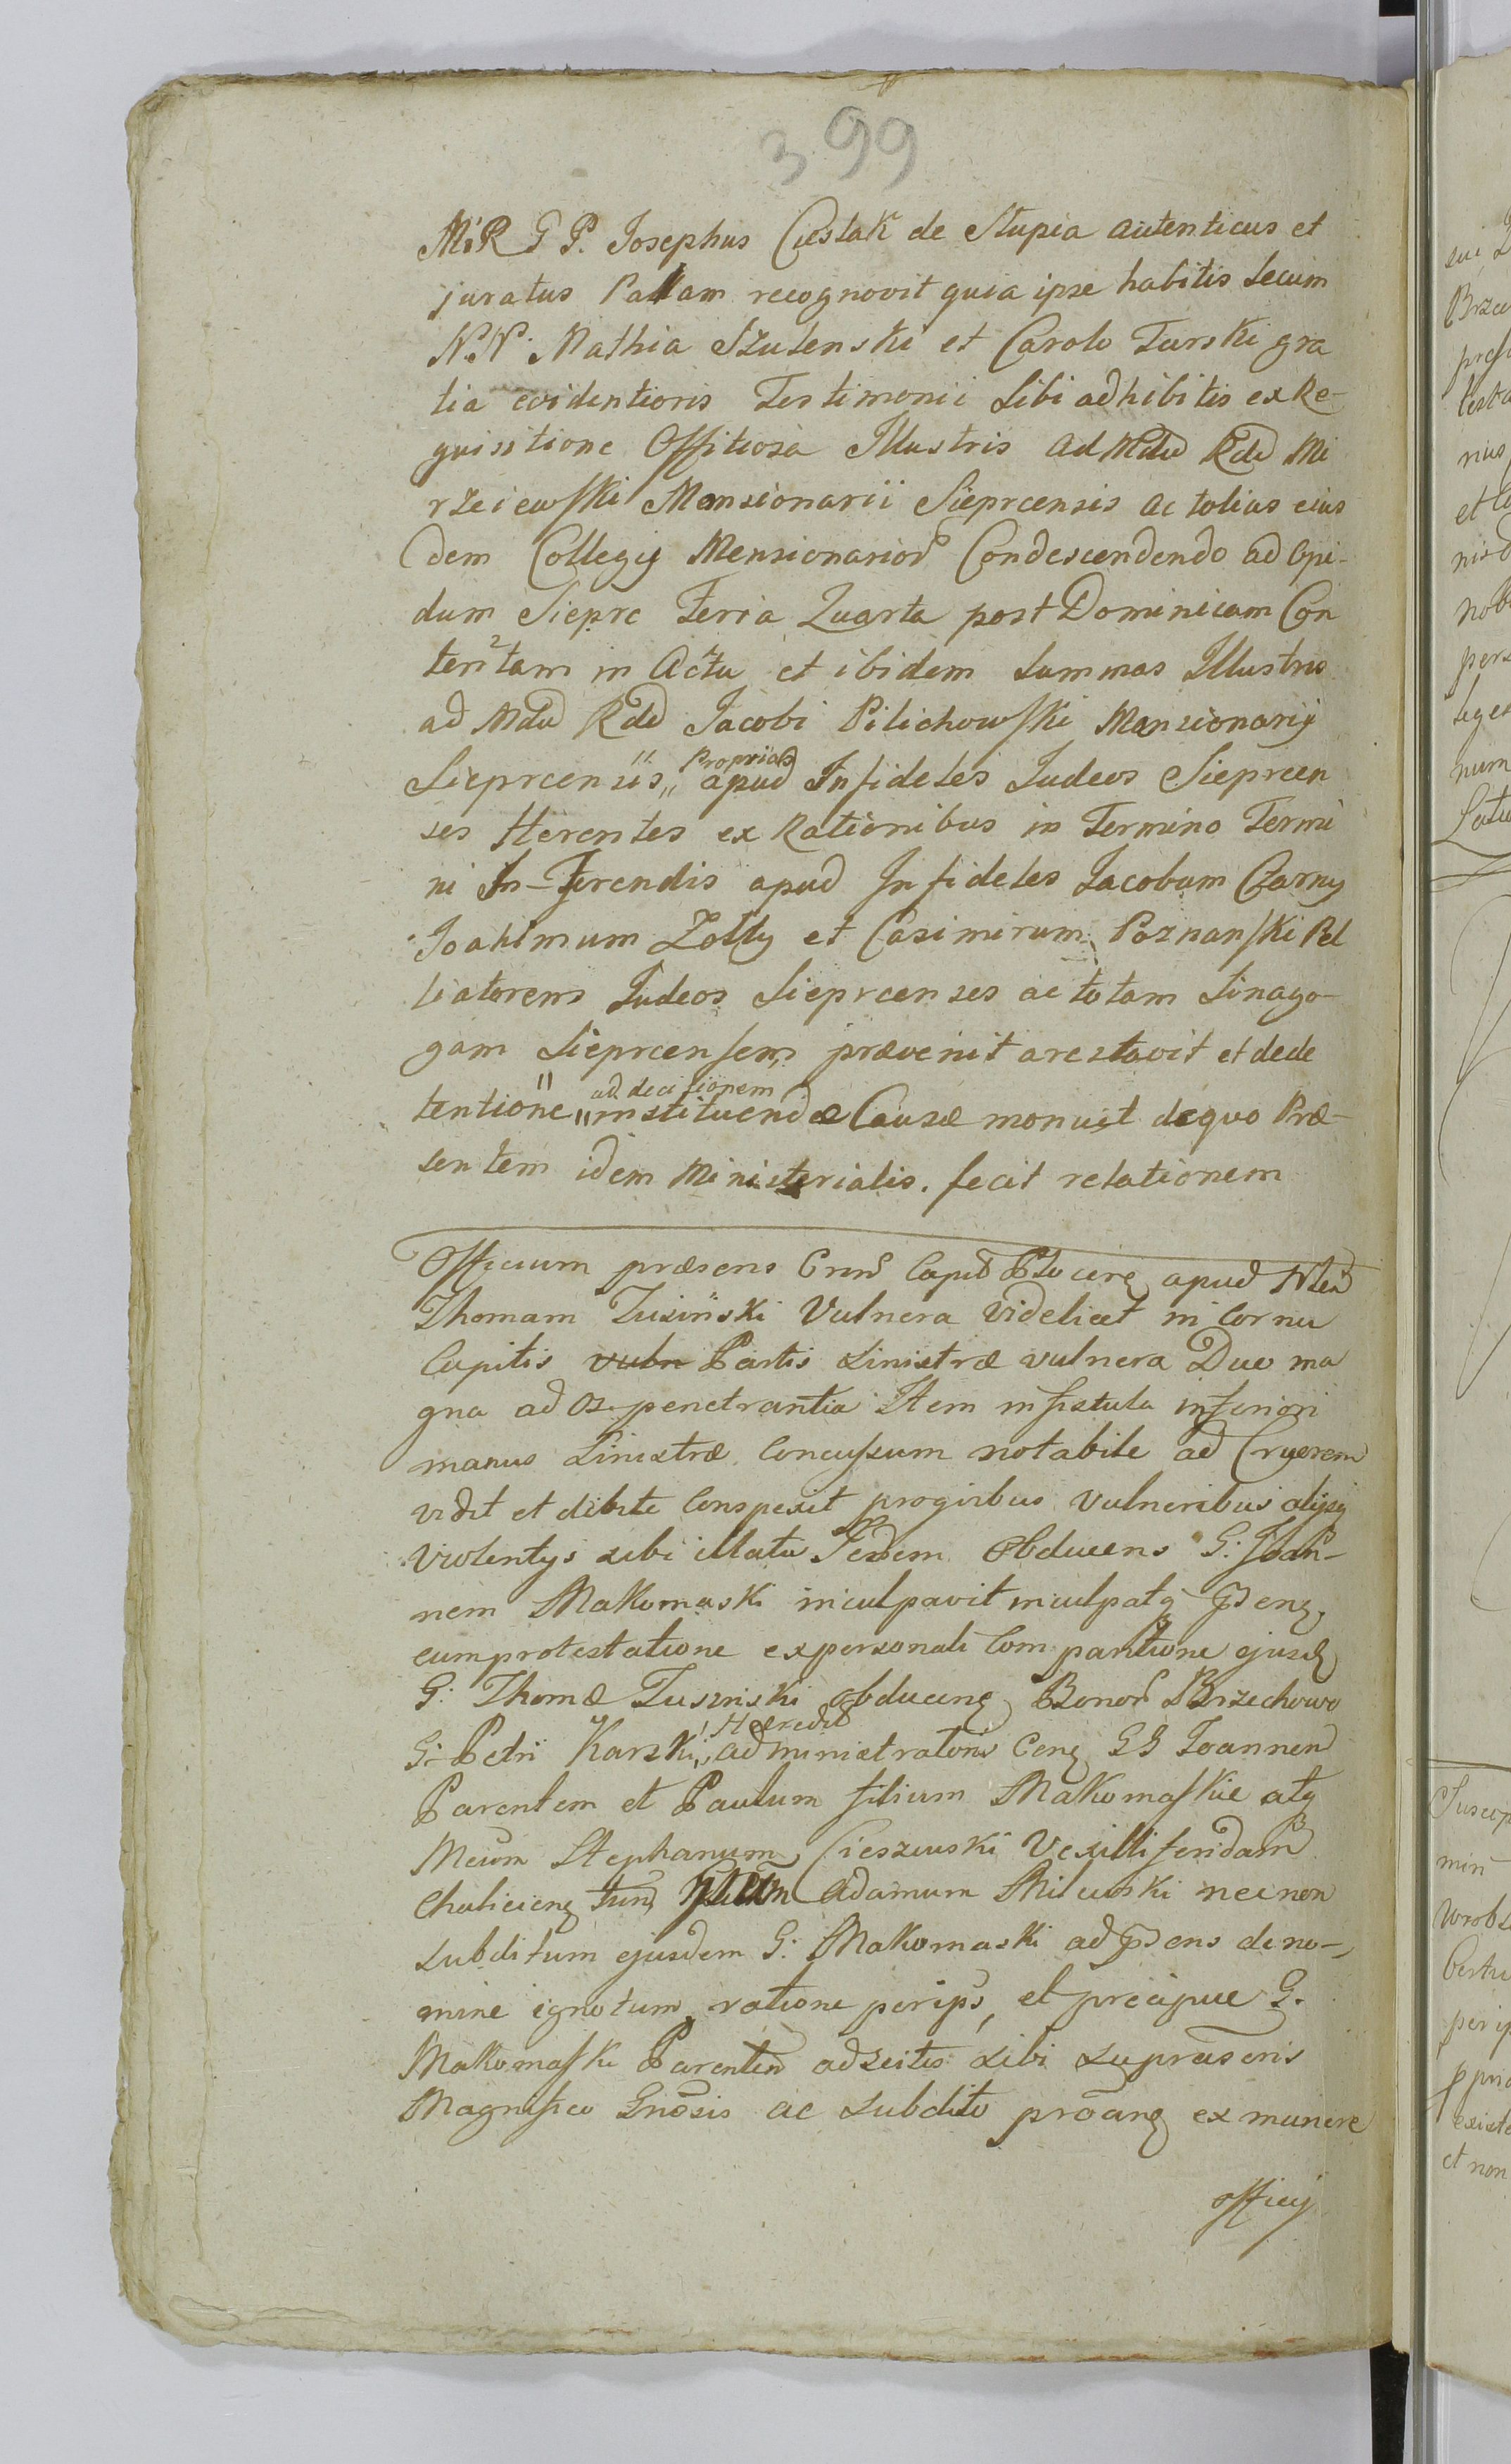 399
MiR G P. Josephus Cieslak de Stupia autenticus et
juratus Pallam recognovit quia ipse habitis secum
N.N. Mathia Szulenski et Carolo Turski gra
tia evidentioris Testimonii Sibi adhibitis ex Re-
quisitione Offitiosa Illustris ad Mdu Rdd Mi
rzeiewski Mansionarii Sieprcensis ac totius eius
dem Collegij Mensionariod Condescendendo ad Opi-
dum Sieprc Feria Quarta post Dominicam Con
tentam in Actu et ibidem Summas Illustris
ad Mdu Rdd Jacobi Pilichowski Mansionarij
Sieprcensis,, Proprias apud Infideles Judeos Sieprcen
ses Herentes ex Rationibus in Termino Termi
ni In-Ferendis apud Infideles Jacobum Czarny
Joahimum Zolty et Casimirum Poznanski Pel
liatorem Judeos Sieprcenses ac totam Sinago-
gam Sieprcensem, prævenit arestavit et de de
tentione,, ad decisionem instituendæ Causæ monuit de quo Præ-
sentem idem Ministerialis. fecit relationem
Officium præsens Crns Capit apud Nlem
Thomam Tusinski Vulnera videlicet in Cornu
Capitis vuln Partis Sinistræ vulnera Duo ma
gna ad os penetrantia Item in fistula inferiori
manus Sinistræ Concussum notabile ad Cruorem
vidit et debite Conspexit proqiribus Vulneribus alijsq
violentys sibi illatis Jdem Obducens G: Joan-
nem Makomaski inculpavit inculpatq
cum protestatione ex personali Com paritione ejusd
G: Thomæ Tusinski obducenq Bonor Brzechowo
G: Petri Karski,, Hæredit administratoris Cenq GG Joannem
Parentem et Paulum filium Makomaskie atq
Meum Stephanum Cieszewski Vexilliferidam
tum Adamum Milewski necnon
subditum ejusdem G: Makomaski ad pdens de no-
mine ignotum ratione perips, et precipue G.
Makomaski Parentem adscitis sibi
Magnifico Gnosis ac subdito proanq ex munere
officij